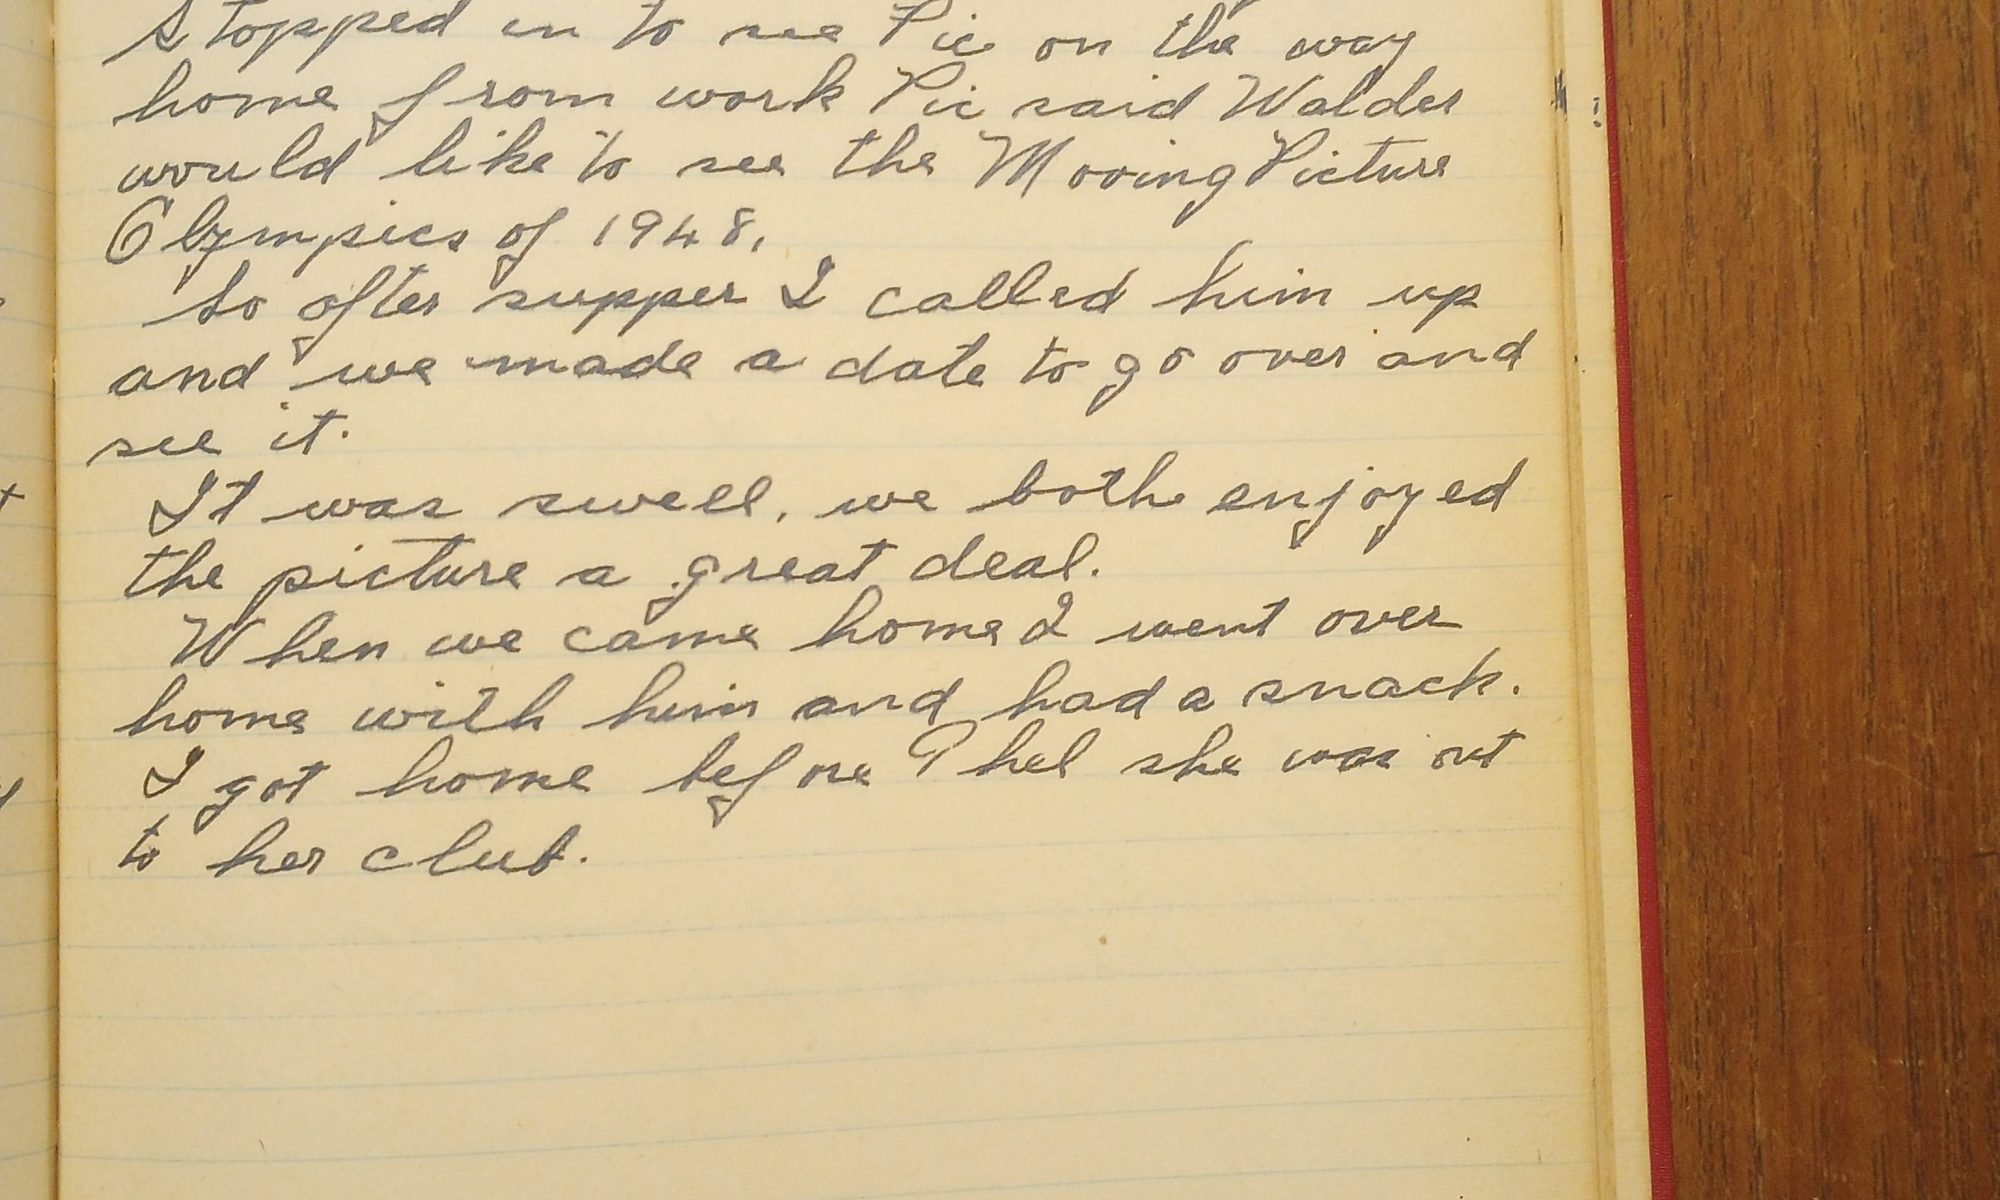 Stopped in to see Pic on the way
home from work Pic said Walder
would like to see the Moving Picture
Olympics of 1948.
So after supper I called him up
and we made a date to go over and
see it.
It was swell, we both enjoyed
the picture a great deal.
When we came home I went over
home with him and had a snack.
I got home before Phel she was out
to her club.